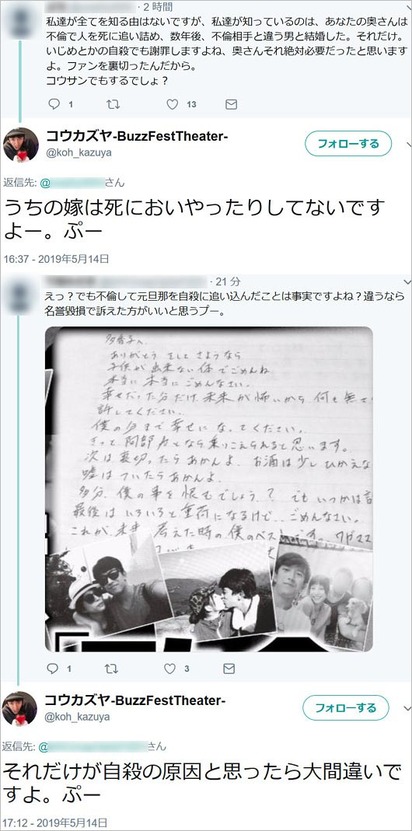 ・2 時間
私達が全てを知る由はないですが、私達が知っているのは、あなたの奥さんは
不倫で人を死に追い詰め、数年後、不倫相手と違う男と結婚した。それだけ。
いじめとかの自殺でも謝罪しますよね、奥さんそれ絶対必要だったと思います
よ。ファンを裏切ったんだから。
コウサンでもするでしょ？
1 13
コウカズヤ-BuzzFestTheater-
@koh_kazuya
フォローする
返信先: @ さん
うちの嫁は死においやったりしてないです
よー。ぷー
16:37 - 2019年5月14日
・21 分
えっ？でも不倫して元旦那を自殺に追い込んだことは事実ですよね？違うなら
名誉毀損で訴えた方がいいと思うプー。
ありがとう そして さようなら
子供が出来ない体でごめんね
本当に 本当に ごめんなさい。
幸せだった分だけ 未来が怖いから 何も無
許してください。
僕の分まで幸せになってください。
きっと 阿部力となら乗りこえられると思います。
次は裏切ったらあかんよ お酒は少しひかえな
嘘はついたらあかんよ
多分、僕の事を恨むでしょう？ でもいつかは
最後は いろいろと重荷になるけど… ごめんなさい。
これが、未来 考えた時の僕のベス
1 3
コウカズヤ-BuzzFestTheater-
@koh_kazuya
フォローする
返信先: @ さん
それだけが自殺の原因と思ったら大間違いで
すよ。ぷー
17:12 - 2019年5月14日